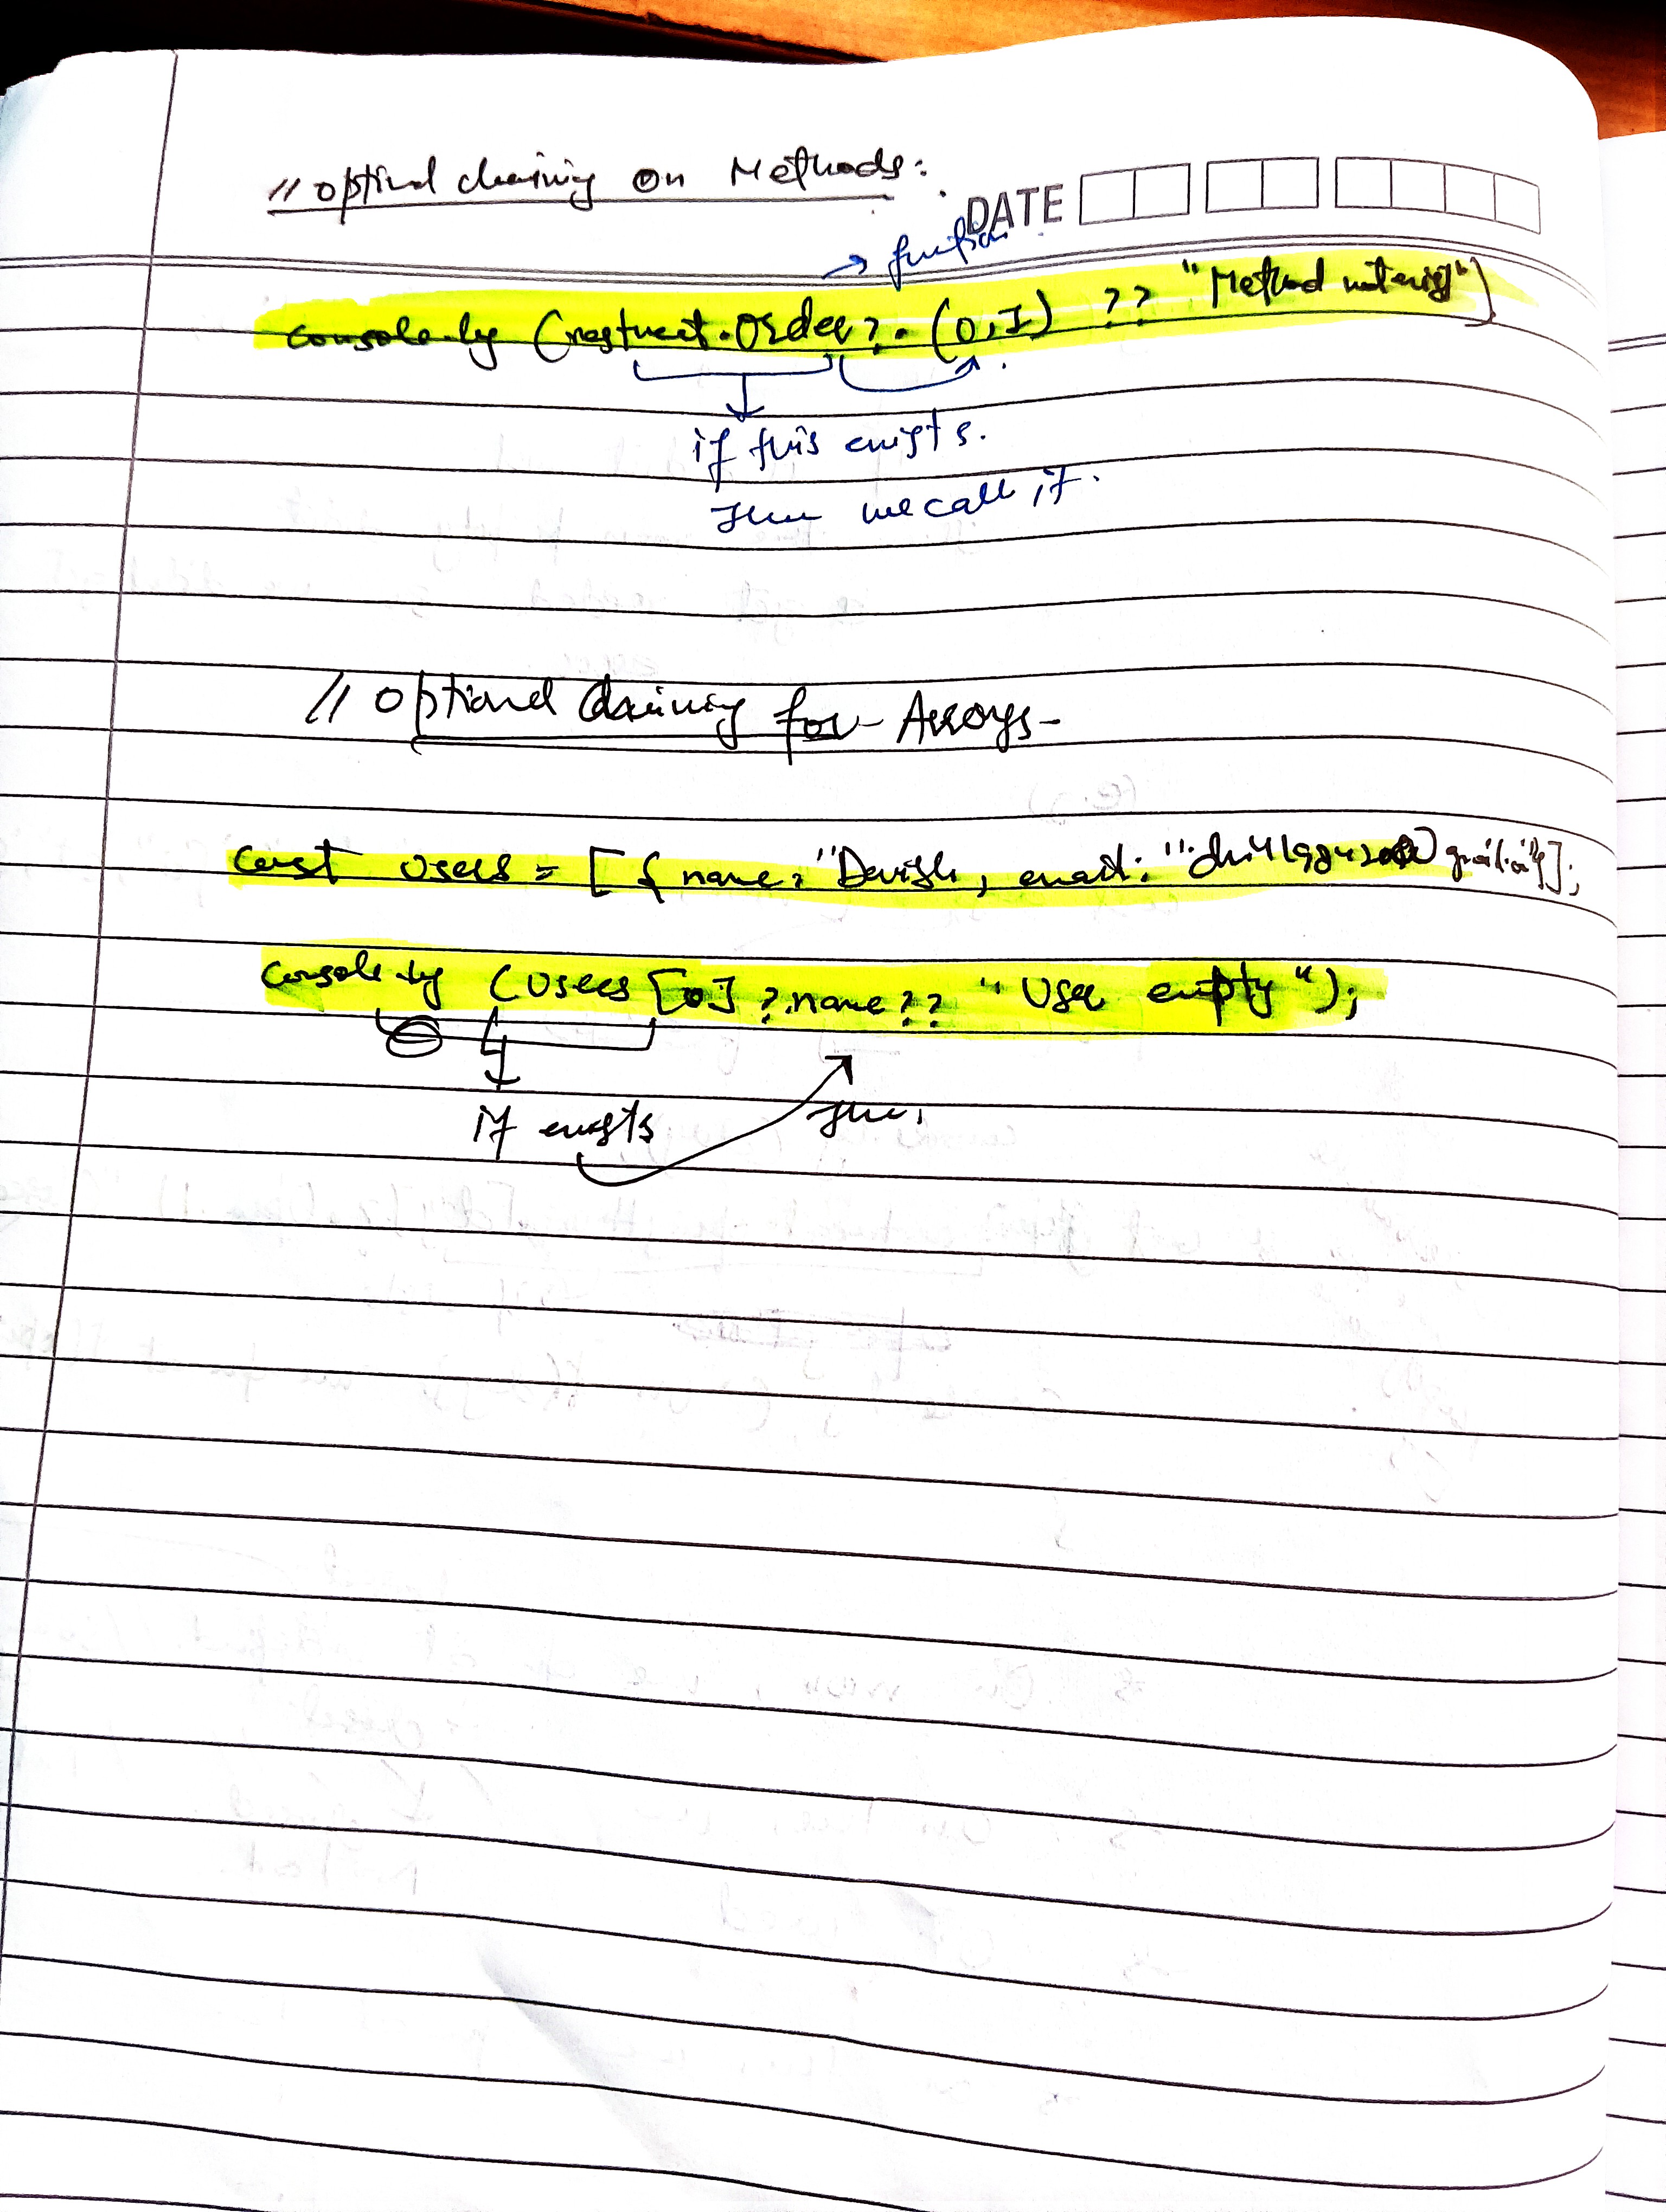 // optional chaining on Methods:
DATE
→ function
console.log (restaurant.order?.(0,1) ?? "Method not exist")
if this exists.
then we call it.
// Optional Chaining for Arrays-
const users = [{ name: "Devish, email:
console.log (users[0]?.name ?? "User empty");
if exists
then,